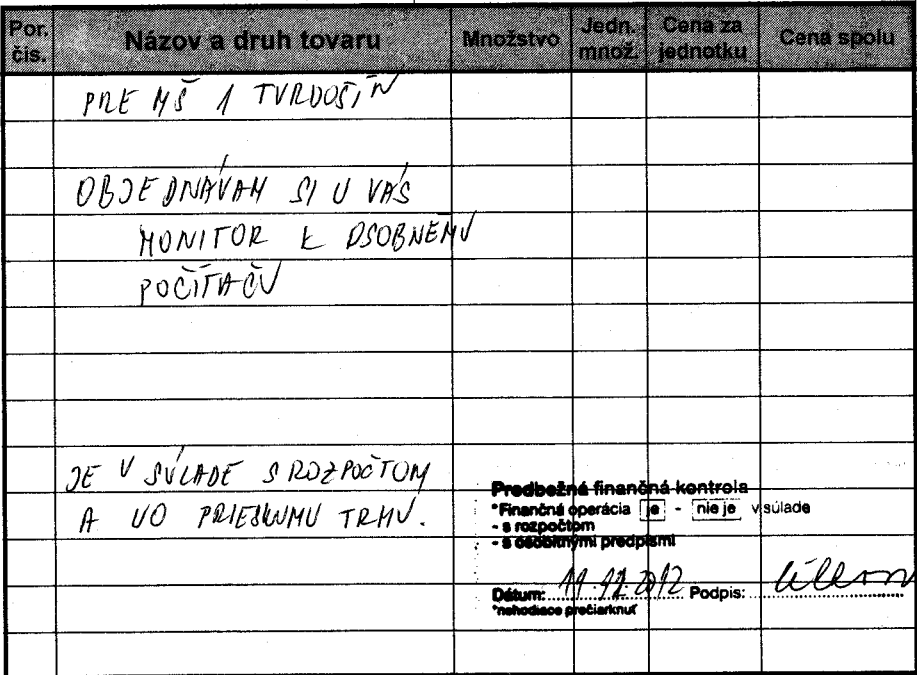 Por. čís. Názov a druh tovaru Množstvo Jedn. množ. Cena za jednotku Cena spolu
PRE MŠ 1 TVRDOŠÍN
OBJEDNÁVAM SI U VÁS
MONITOR K OSOBNÉMU
POČÍTAČU
JE V SÚLADE S ROZPOČTOM
A VO PRIESKUMU TRHU.
Predbežná finančná kontrola
*Finančná operácia je - nie je v súlade
- s rozpočtom
- s osobitnými predpismi
Dátum: 11.12.2012 Podpis:
*nehodiace prečiarknuť